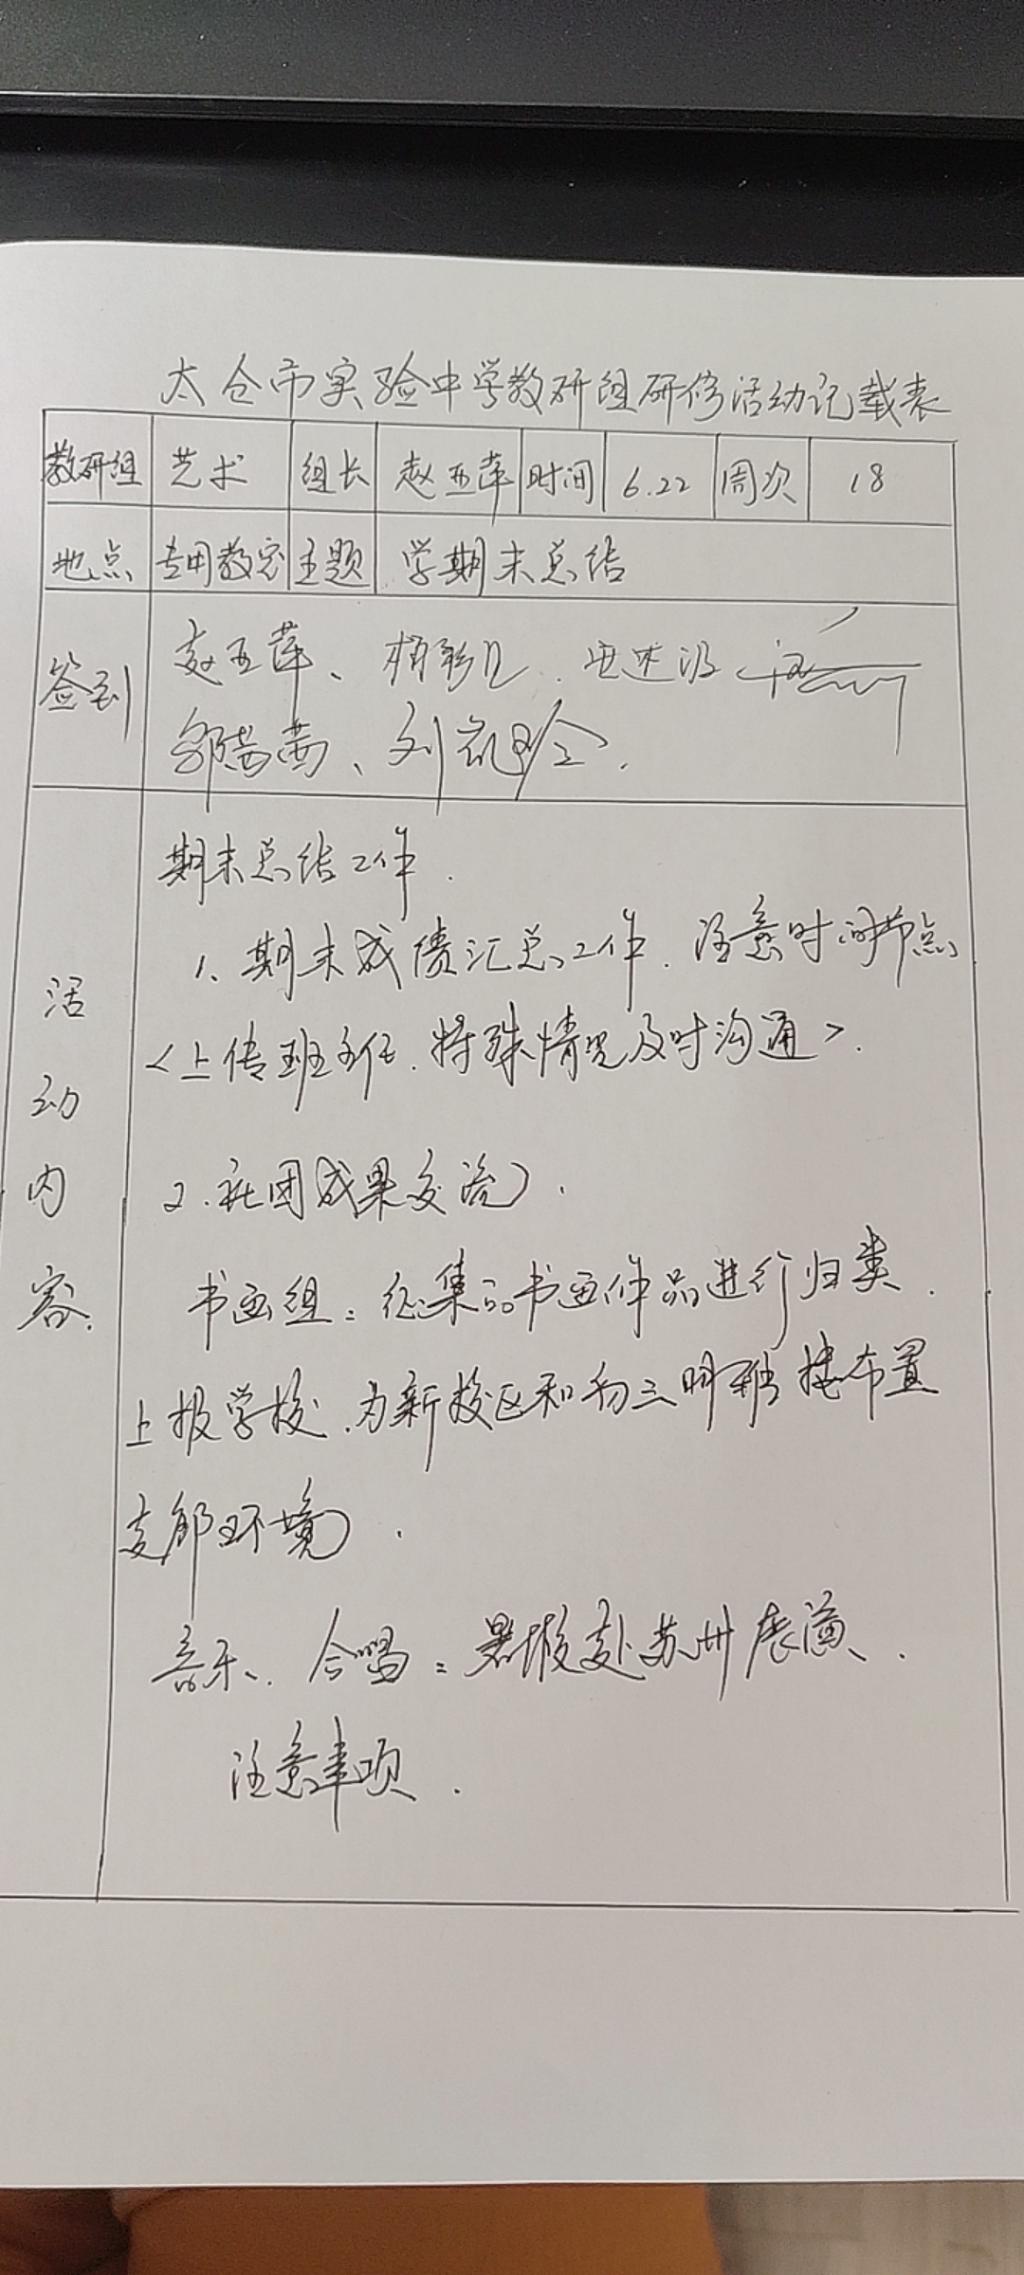 太仓市实验中学教研组研修活动记载表
教研组 艺术 组长 赵亚萍 时间 6.22 周次 18
地点 专用教室 主题 学期末总结
签到 赵亚萍、
邹茜茜、刘
活动内容
期末总结工作.
1、期末成绩汇总工作.注意时间节点
<上传班主任.特殊情况及时沟通>.
2.社团成果交流.
书画组:征集的书画作品进行归类.
上报学校.为新校区和初三明雅楼布置
支部环境.
音乐.合唱:暑假赴苏州展演.
注意事项.